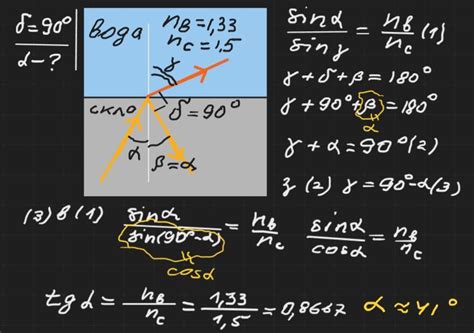 δ=90°
α-?
вода
n_в=1,33
n_с=1,5
γ
скло
δ=90°
α
β=α
sinα/sinγ = n_в/n_с (1)
γ+δ+β=180°
γ+90°+β=180°
α
γ+α=90°(2)
з (2) γ=90°-α(3)
(3) в (1) sinα/sin(90°-α) = n_в/n_с
cosα
sinα/cosα = n_в/n_с
tgα = n_в/n_с = 1,33/1,5 = 0,8667 α≈41°